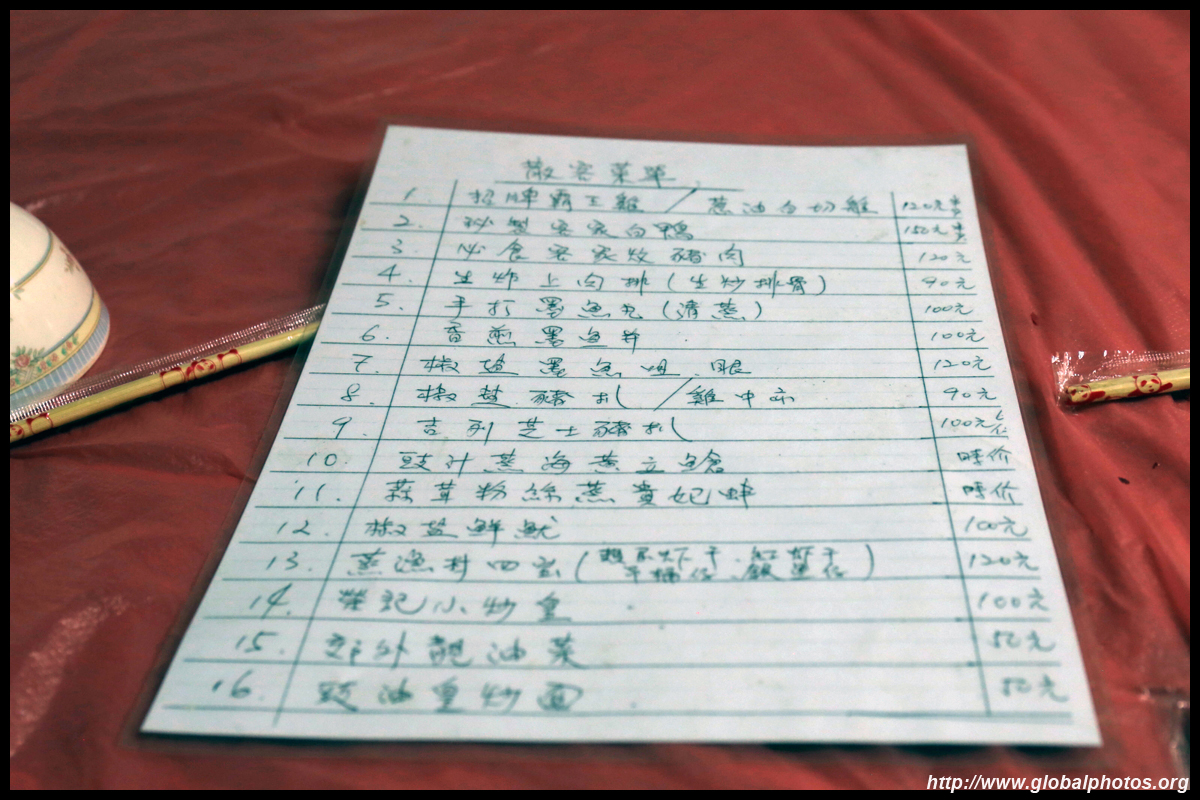 散客菜單
1. 招牌霸王雞/葱油白切雞 120元半隻
2. 秘製客家白鴨 150元半隻
3. 必食客家炆豬肉 120元
4. 生炸上肉排(生炒排骨) 90元
5. 手打墨魚丸(清蒸) 100元
6. 香煎墨魚片 100元
7. 椒盐墨魚咀.眼 120元
8. 椒盐豬扒/雞中亦 90元
9. 吉列芝士豬扒 100元
10. 豉汁蒸海黃立鱠 時价
11. 蒜茸粉絲蒸貴妃蚌 時价
12. 椒盐鮮魷 100元
13. 蒸漁村四宝( 120元
14. 榮記小炒皇 100元
15. 郊外靚油菜 50元
16. 豉油皇炒面 50元
http://www.globalphotos.org